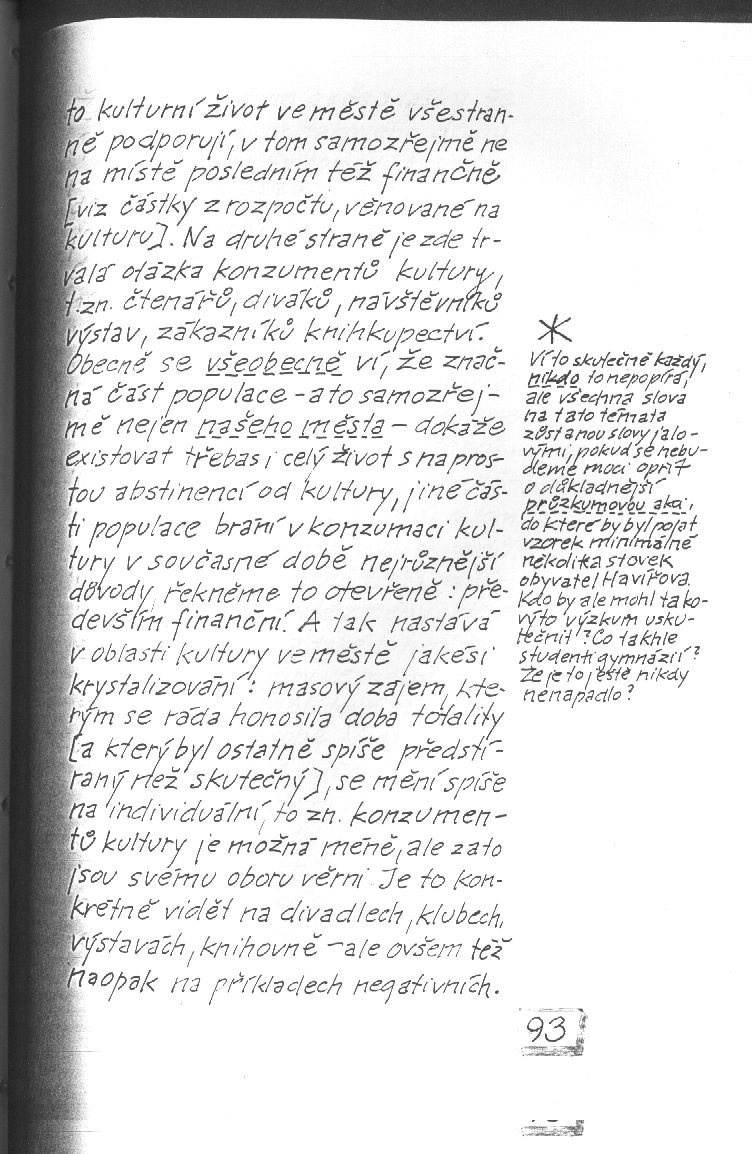 to kulturní život ve městě všestran-
ně podporují, v tom samozřejmě ne
na místě posledním též finančně
[viz částky z rozpočtu, věnované na
kulturu]. Na druhé straně je zde tr-
valá otázka konzumentů kultury,
t.zn. čtenářů, diváků, návštěvníků
výstav, zákazníků knihkupectví.
Obecně se všeobecně ví, že znač-
ná část populace - a to samozřej-
mě nejen našeho města - dokáže
existovat třebas i celý život s napros-
tou abstinencí od kultury, jiné čás-
ti populace brání v konzumaci kul-
tury v současné době nejrůznější
důvody, řekněme to otevřeně: pře-
devším finanční. A tak nastává
v oblasti kultury ve městě jakési
krystalizování: masový zájem, kte-
rým se ráda honosila doba totality
[a který byl ostatně spíše předstí-
raný než skutečný], se mění spíše
na individuální, to zn. konzumen-
tů kultury je možná méně, ale zato
jsou svému oboru věrni. Je to kon-
krétně vidět na divadlech, klubech,
výstavách, knihovně - ale ovšem též
naopak na příkladech negativních.
*
Ví to skutečně každý,
nikdo to nepopírá,
ale všechna slova
na tato témata
zůstanou slovy jalo-
vými, pokud se nebu-
deme moci opřít
o důkladnější
průzkumovou akci,
do které by byl pojat
vzorek minimálně
několika stovek
obyvatel Havířova.
Kdo by ale mohl tako-
výto výzkum usku-
tečnit? Co takhle
studenti gymnázií?
Že je to ještě nikdy
nenapadlo?
93